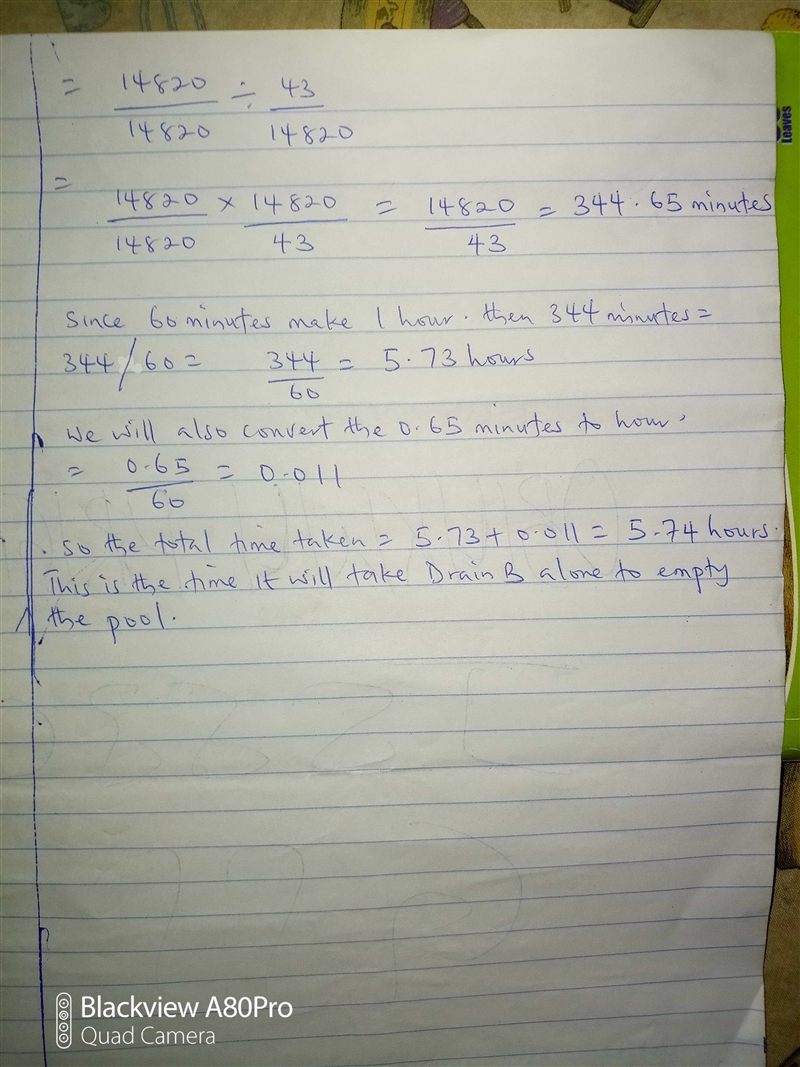 = 14820/14820 ÷ 43/14820
= 14820/14820 × 14820/43 = 14820/43 = 344.65 minutes
Since 60 minutes make 1 hour. then 344 minutes =
344/60 = 344/60 = 5.73 hours
We will also convert the 0.65 minutes to hour.
= 0.65/60 = 0.011
. So the total time taken = 5.73 + 0.011 = 5.74 hours.
This is the time it will take Drain B alone to empty
the pool.
Leaves
Blackview A80Pro
Quad Camera